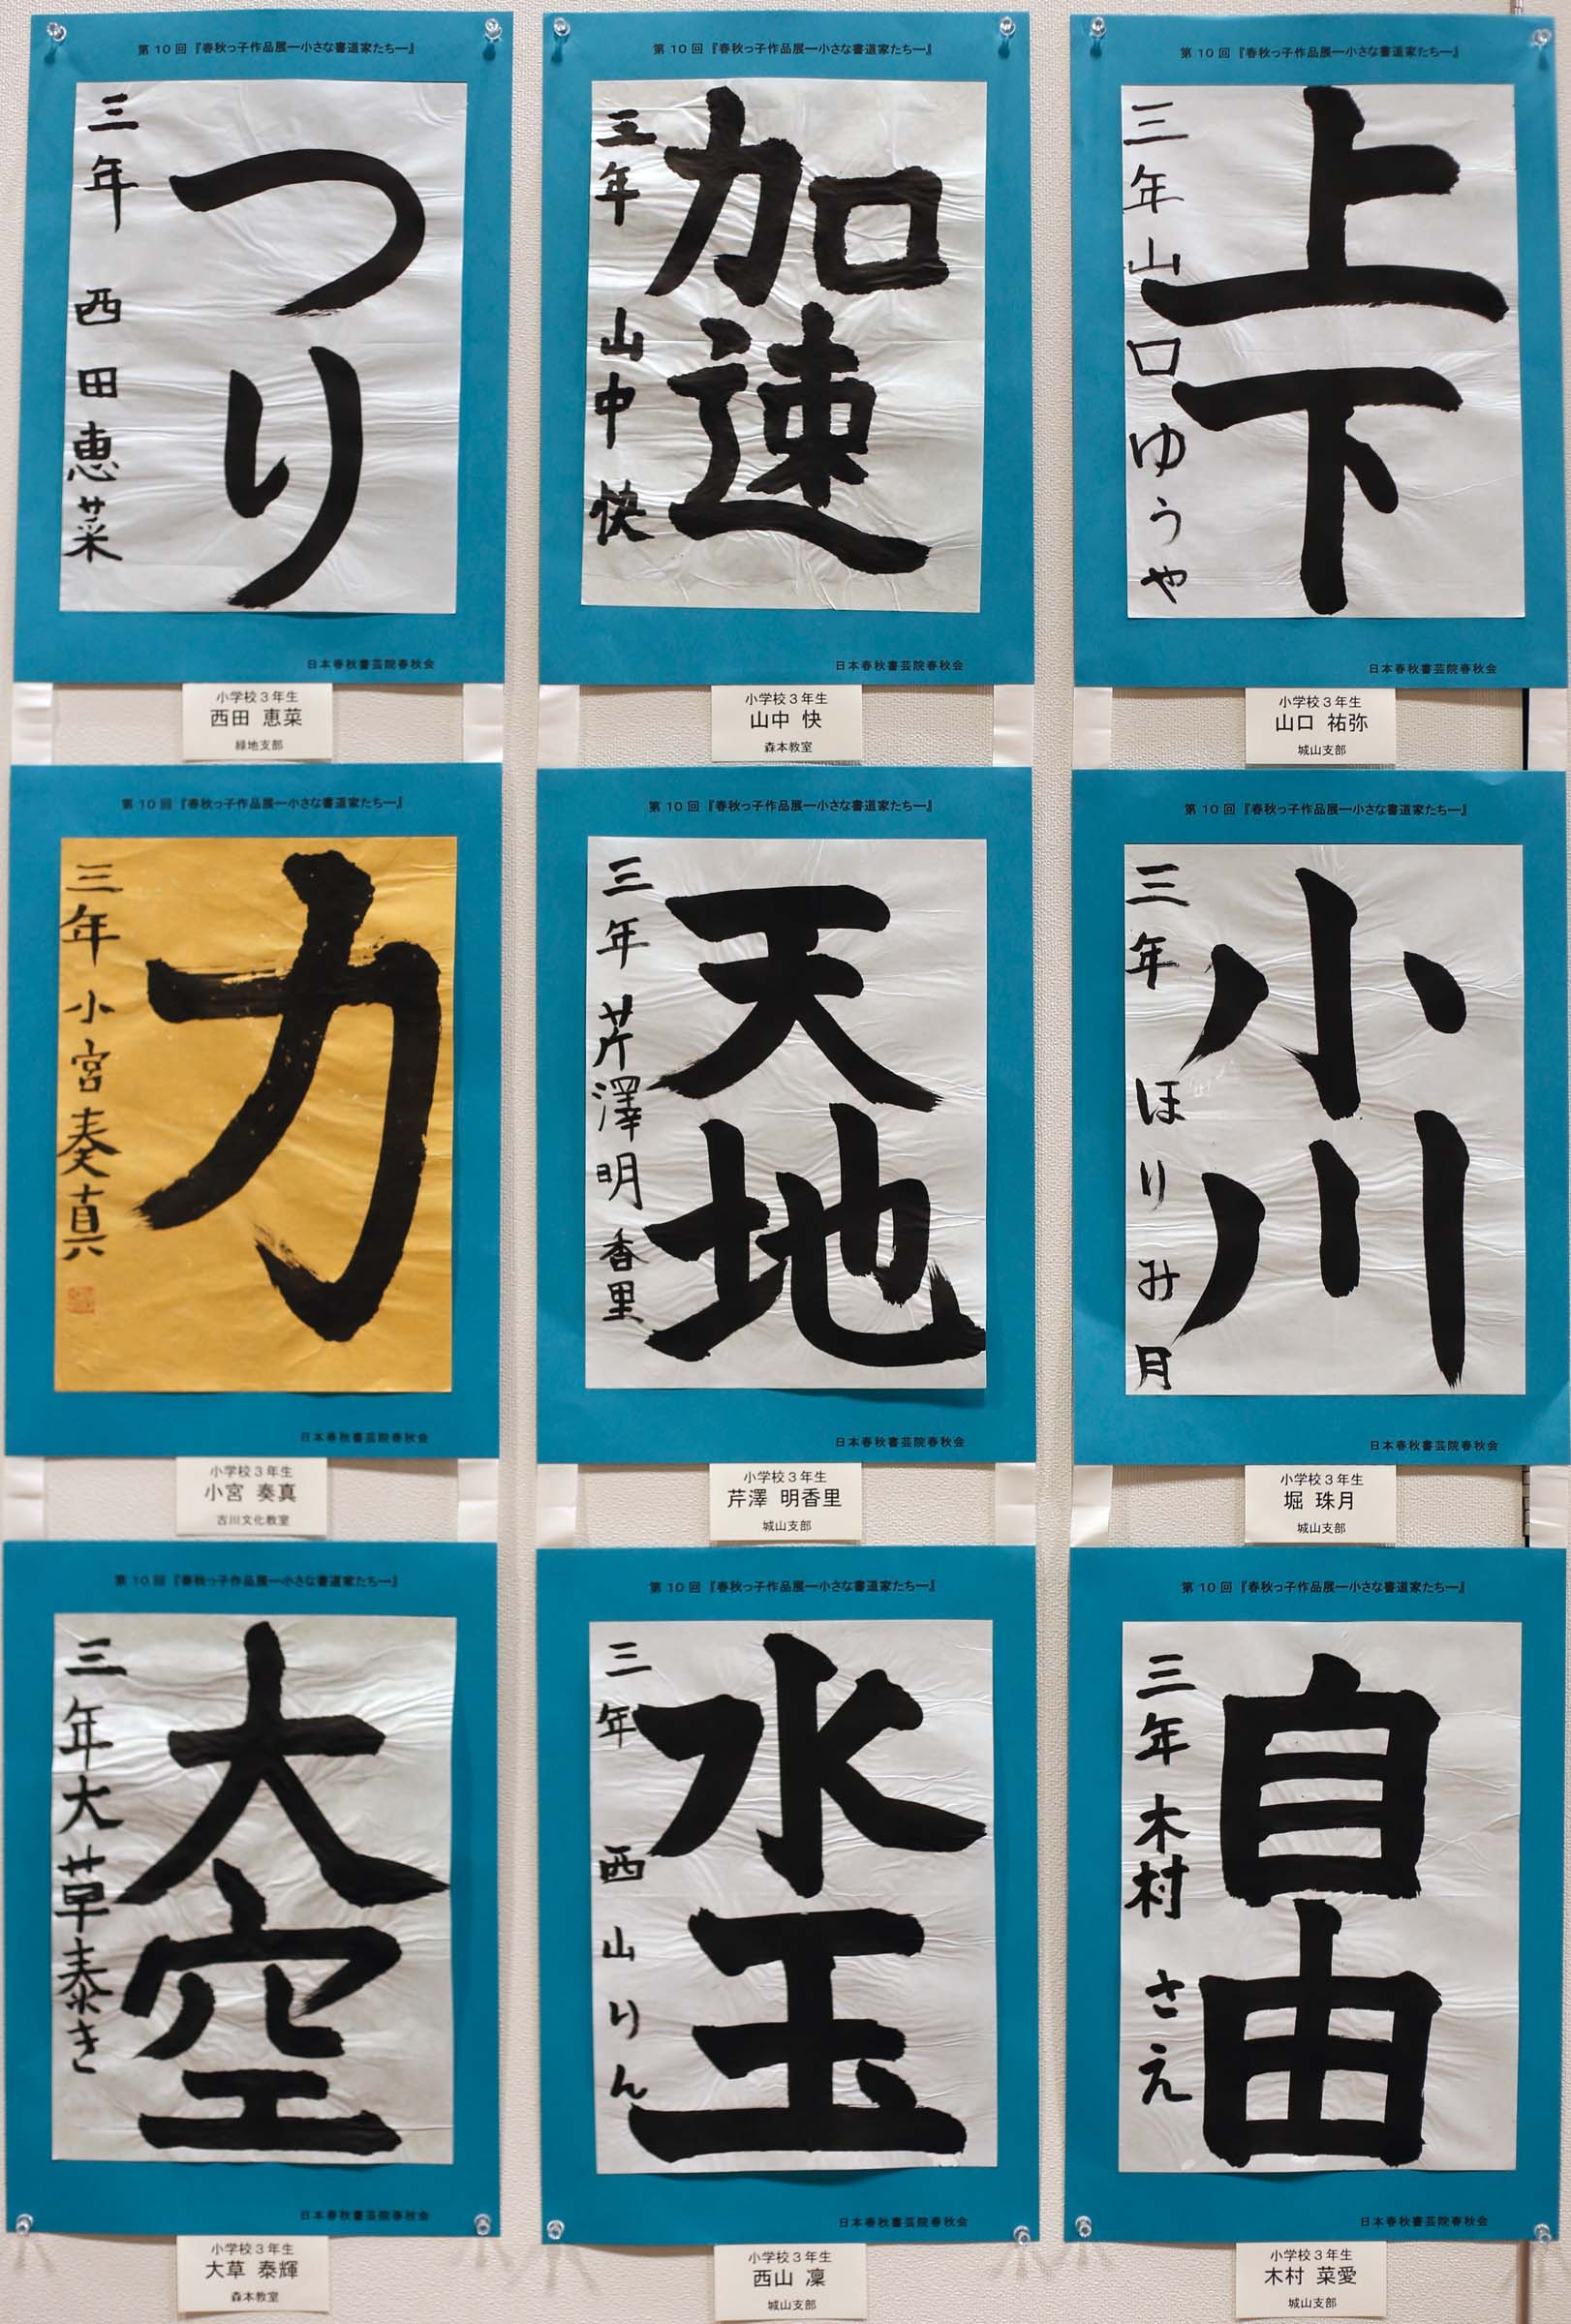 第10回『春秋っ子作品展―小さな書道家たち―』
つり
三年 西田恵菜
日本春秋書芸院春秋会
小学校3年生
西田 恵菜
緑地支部
第10回『春秋っ子作品展―小さな書道家たち―』
加速
三年 山中 快
日本春秋書芸院春秋会
小学校3年生
山中 快
森本教室
第10回『春秋っ子作品展―小さな書道家たち―』
上下
三年 山口ゆうや
日本春秋書芸院春秋会
小学校3年生
山口 祐弥
城山支部
第10回『春秋っ子作品展―小さな書道家たち―』
力
三年 小宮奏真
日本春秋書芸院春秋会
小学校3年生
小宮 奏真
古川文化教室
第10回『春秋っ子作品展―小さな書道家たち―』
天地
三年 芹澤明香里
日本春秋書芸院春秋会
小学校3年生
芹澤 明香里
城山支部
第10回『春秋っ子作品展―小さな書道家たち―』
小川
三年 ほりみ月
日本春秋書芸院春秋会
小学校3年生
堀 珠月
城山支部
第10回『春秋っ子作品展―小さな書道家たち―』
大空
三年 大草泰き
日本春秋書芸院春秋会
小学校3年生
大草 泰輝
森本教室
第10回『春秋っ子作品展―小さな書道家たち―』
水玉
三年 西山りん
日本春秋書芸院春秋会
小学校3年生
西山 凜
城山支部
第10回『春秋っ子作品展―小さな書道家たち―』
自由
三年 木村 さえ
日本春秋書芸院春秋会
小学校3年生
木村 菜愛
城山支部